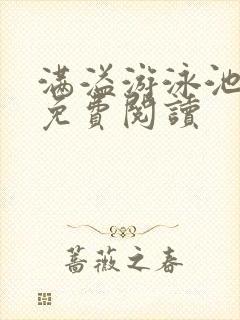 满溢游泳池
免費閱讀
蔷薇之春